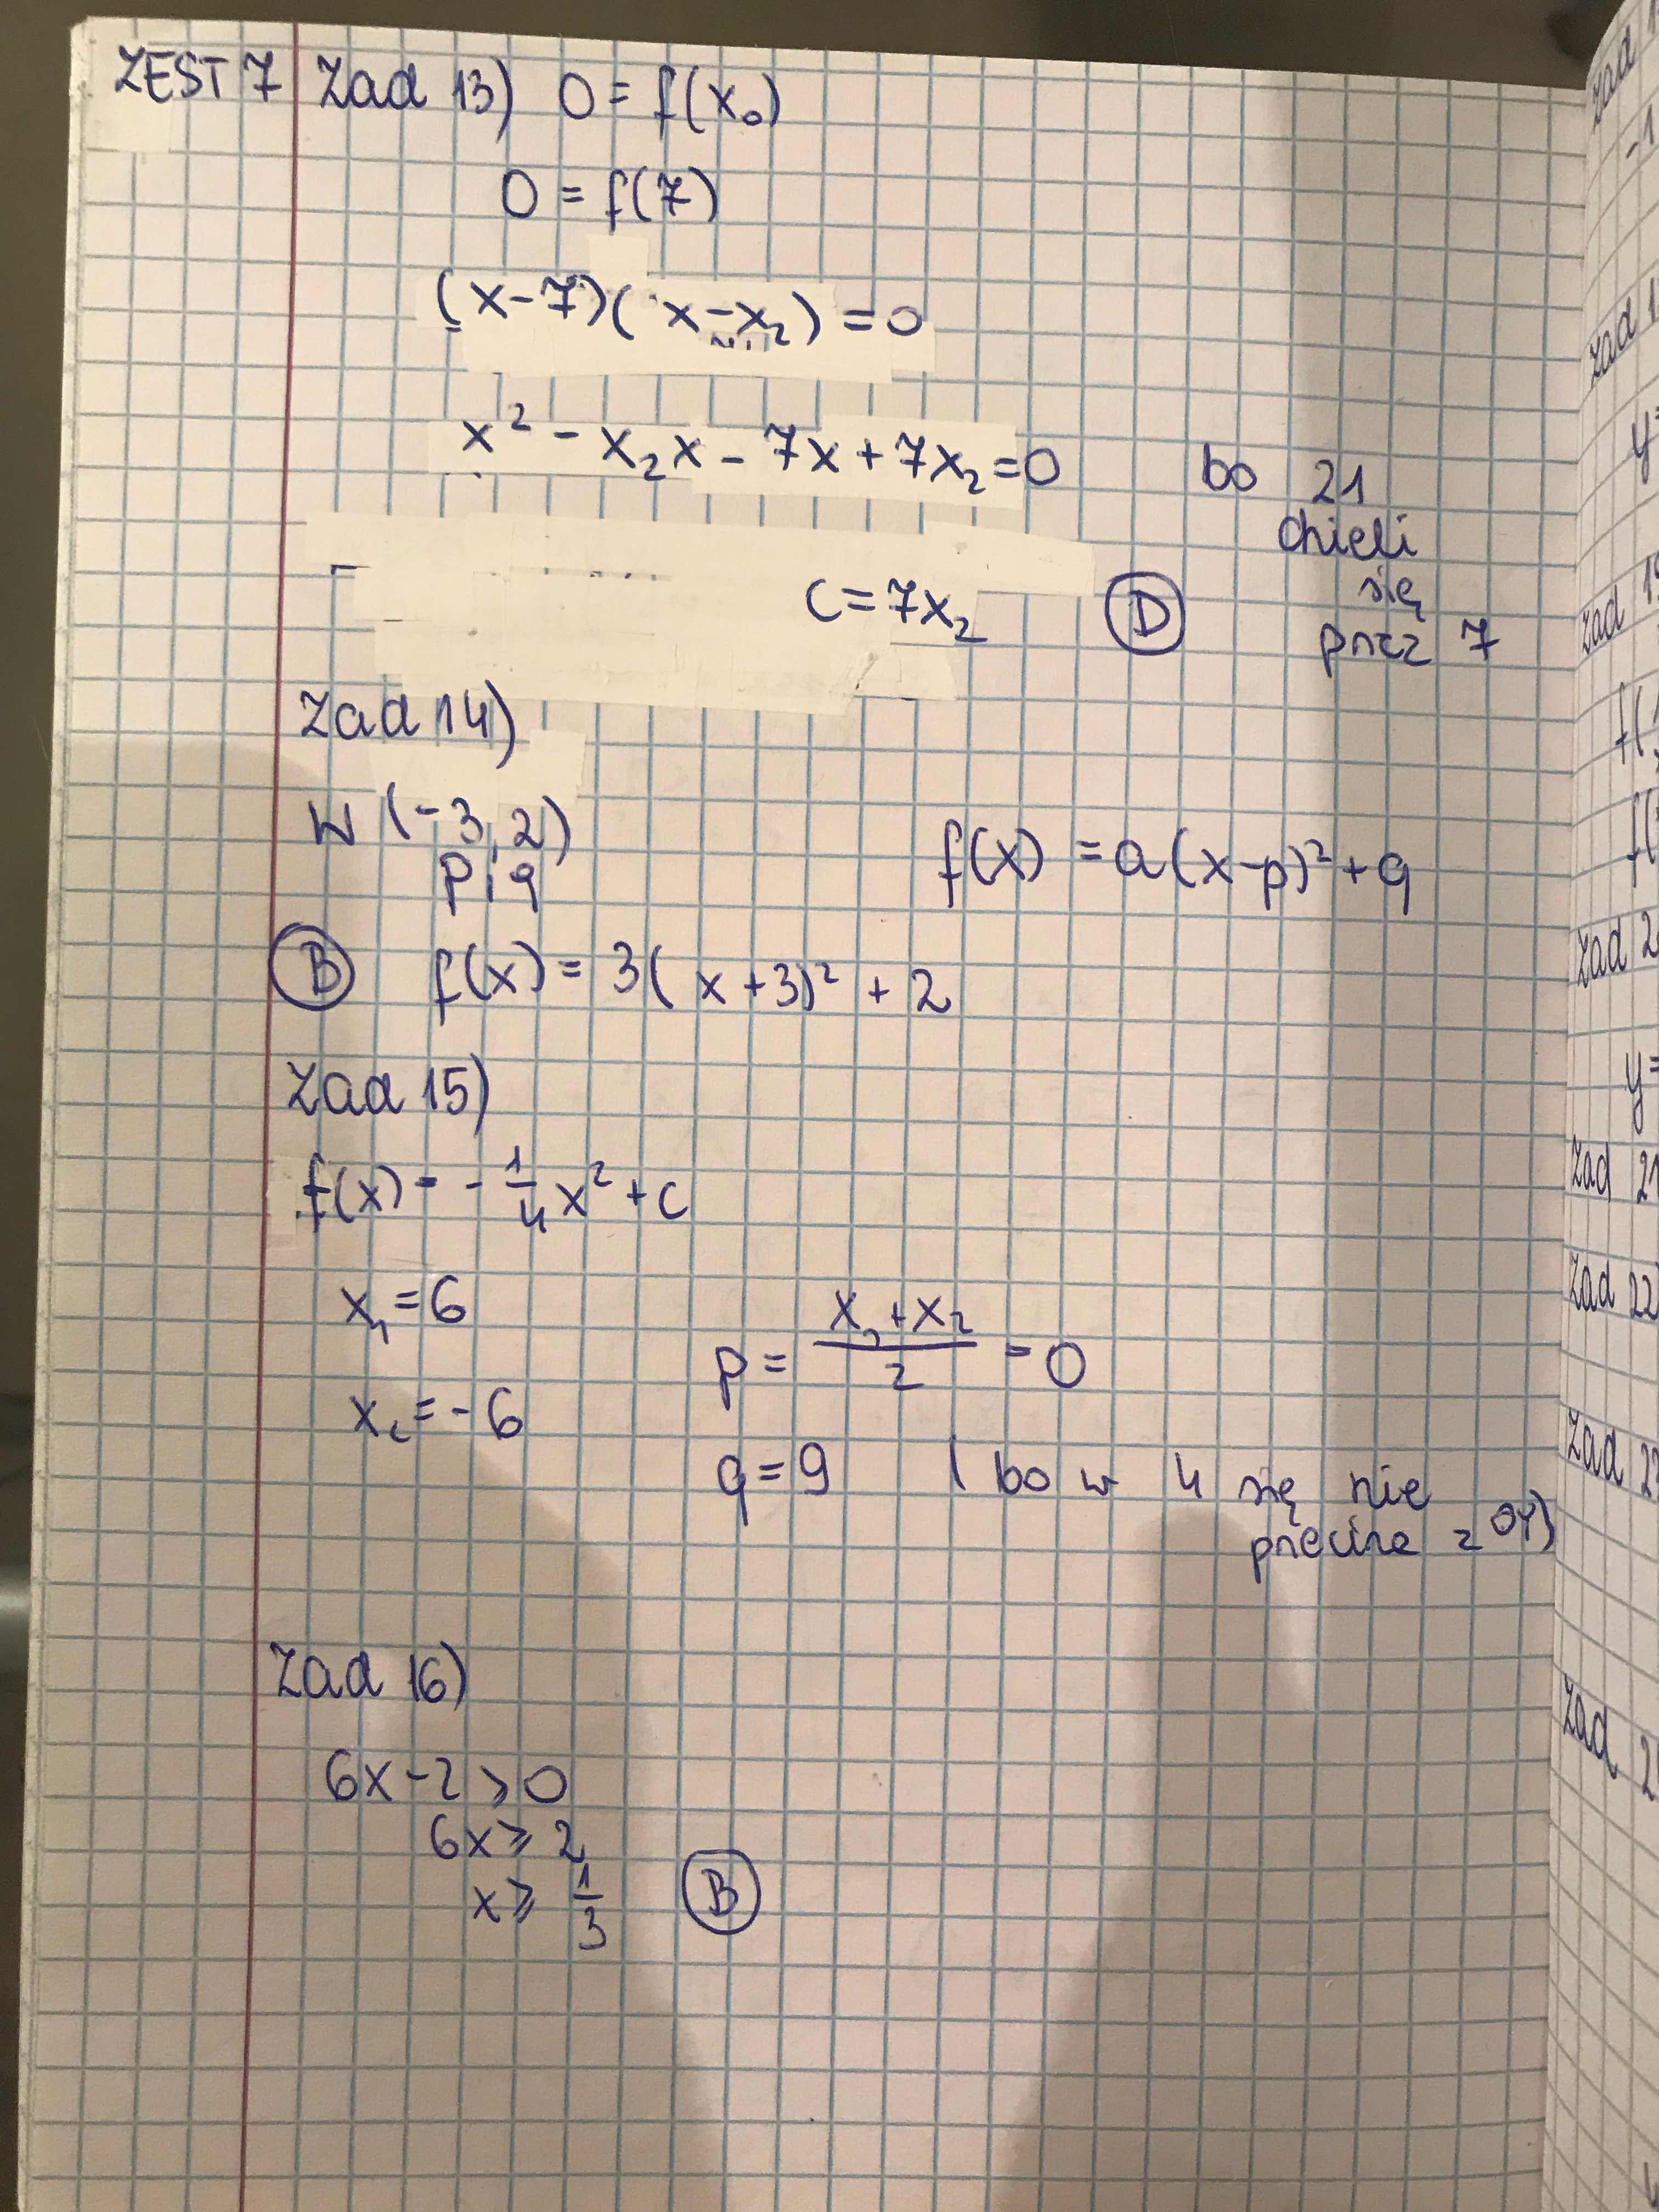 ZEST 7 Zad 13) 0 = f(x₀)
0 = f(7)
(x-7)(x-x₂) = 0
x² - x₂x - 7x + 7x₂ = 0 bo 21
dzieli
się
c = 7x₂ D przez 7
Zad 14)
W (-3, 2)
p i q f(x) = a(x-p)² + q
B f(x) = 3(x+3)² + 2
Zad 15)
f(x) = -1/4 x² + c
x₁ = 6
p = (x₁+x₂)/2 = 0
x₂ = -6
q = 9 ( bo w 4 się nie
przecina z OY)
Zad 16)
6x-2 ⩾ 0
6x ⩾ 2
x ⩾ 1/3 B
zad 1
-1
zad 1
y=
zad 19
f(1
f(
zad 2
y=
zad 21
zad 22
zad 23
zad 2